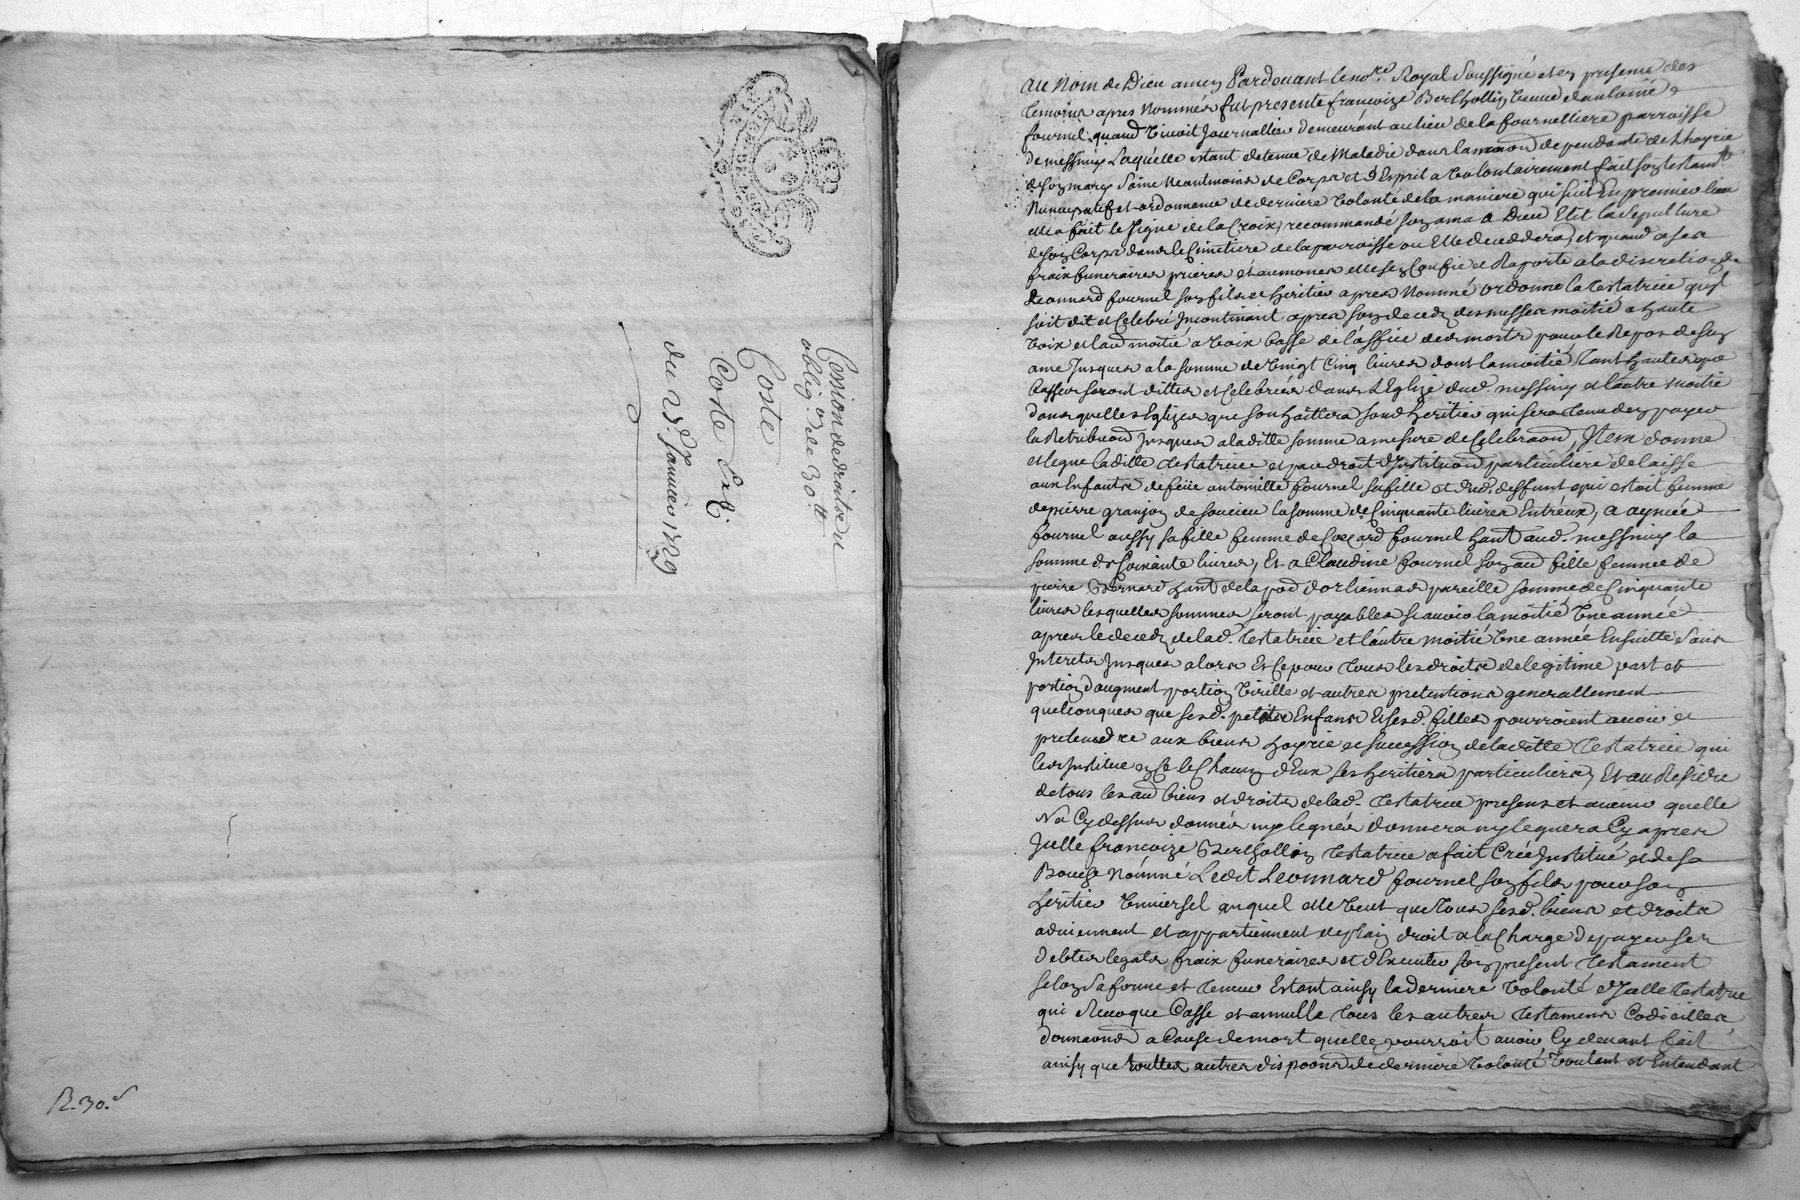 Cession de droits du
oblig.on de 30 tt
Coste
Coste Exl.
du 2e Januier 1729
R. 30.s
Au Nom de Dieu amen Pardeuant le no.re Royal Soussigné et en presence des
temoins apres Nommés fut presente francoize Berthollin veuue d'antoine
fournel quand viuoit Journallier demeurant au lieu de la fournelliere parroisse
de messimy Laquelle estant detenue de Maladie dans la maison dependante de l'hoyrie
de son mary Saine Neantmoins de Corps et d'Esprit a volontairement fait son testam.t
Nuncupatif et ordonnance de derniere volonté de la maniere qui suit En premier lieu
elle a fait le signe de la Croix, recommandé son ame a Dieu Elit la sepulture
de son Corps dans le Cimetiere de la parroisse ou Elle deceddera, et quand a ses
fraix funeraires prieres et aumones elle sen Confie et Raporte a la discretion de
Leonnard fournel son fils et heritier apres Nommé ordonne la testatrice qu'il
soit dit et Celebré Incontinant apres son deceds des messes moitié a haute
voix et l'au.e moitié a voix basse de l'office des morts pour le Repos de son
ame Jusques a la somme de vingt Cinq liures dont la moitié tant hautes que
basses seront dittes et Celebrées dans l'Eglize dud. messimy et l'autre moitié
dans quelles Eglizes que souhaittera sond heritier qui sera tenu den payer
la Retribuon Jusques a laditte somme a mesure de Celebraon, Item donne
et legue laditte testatrice et par droit d'Instituon particuliere delaisse
aux Enfants de feüe antoinette fournel sa fille et dud. deffunt qui estoit femme
de pierre granjon de soucieu la somme de Cinquante liures Entreux, a aymée
fournel aussy sa fille femme de fournel ha.nt aud. messimy la
somme de soixante liures, Et a Claudine fournel son au.e fille femme de
pierre Bernard ha.nt de la p.sse d'orliennas pareille somme de Cinquante
liures lesquelles sommes seront payables scauoir la moitié vne année
apres le deceds de lad. testatrice et l'autre moitié vne année Ensuitte sans
Interets Jusques alors Et ce pour tous les droits de legitime part et
portion d'augment portion virille et autres pretentions generallement
quelconques que sesd. petits Enfans et sesd. filles pourroient auoir et
pretendre aux biens hoyrie et succession de laditte testatrice qui
les Institue en Ce le Chacun d'Eux ses heritiers particuliers, Et au Residu
de tous les au.es biens et droits de lad. testatrice presens et auenir quelle
Na Cy dessus donnés ny legués donnera ny leguera Cy apres
Jcelle francoize Berthollin testatrice a fait Créé Institué et de sa
Bouche Nommé Ledit Leonnard fournel son fils pour son
heritier vniuersel auquel elle veut que tous sesd. biens et droits
aduiennent et appartiennent de plain droit a la Charge de payer ses
debtes legats fraix funeraires et d'Executer son present testament
selon sa forme et teneur Estant ainsy la derniere volonté d'Jcelle testatrice
qui Reuoque Casse et annulle tous les autres testamens Codicilles
donnaons a Cause de mort quelle pourroit auoir Cy deuant fait
ainsy que touttes autres dispoons de derniere volonté voulant et Entendant